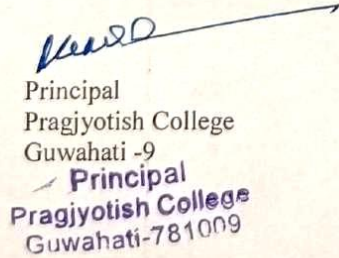 Principal
Pragjyotish College
Guwahati -9
Principal
Pragjyotish College
Guwahati-781009